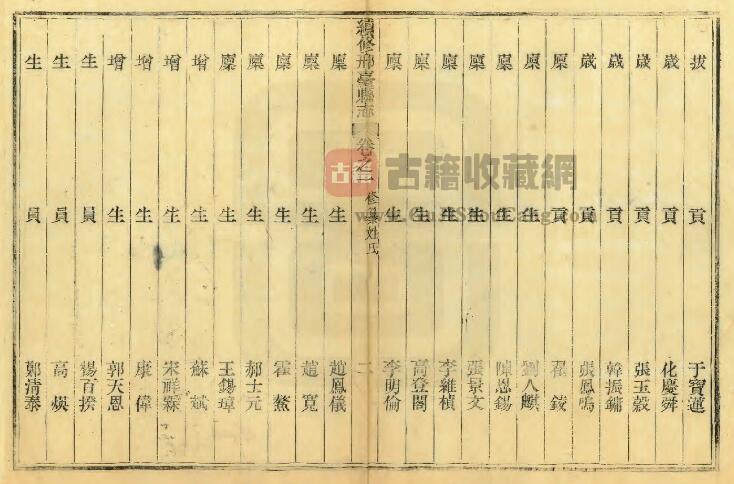 拔貢于寶蓮
歲貢化慶舜
歲貢張玉縠
歲貢韓振鏞
歲貢張鳳鳴
廩貢翟錂
廩生劉八麒
廩生陳恩錫
廩生張景文
廩生李維楨
廩生高登閣
廩生李明倫
續修邢臺縣志 卷之一 修纂姓氏 二
廩生趙鳳儀
廩生趙寬
廩生霍鰲
廩生郝士元
廩生王錫璋
增生蘇斌
增生宋祥霖
增生康偉
增生郭天恩
生員楊百揆
生員高煐
生員鄭清泰
古籍
古籍收藏網
www.GuJiShouCang.com